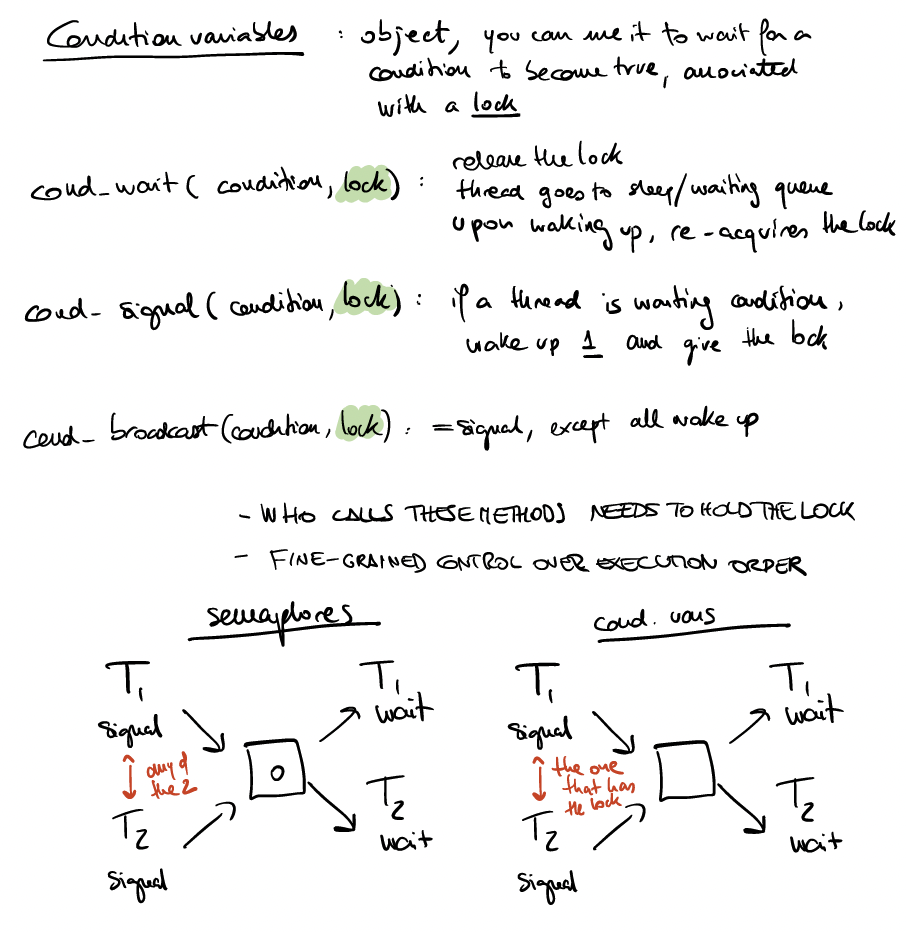 Condition variables : object, you can use it to wait for a
condition to become true, associated
with a lock
cond_wait( condition, lock) : release the lock
thread goes to sleep/waiting queue
upon waking up, re-acquires the lock
cond_ signal( condition, lock) : if a thread is wanting condition,
wake up 1 and give the lock
cond_ broadcast(condition, lock) : = signal, except all wake up
- WHO CALLS THESE METHODS NEEDS TO HOLD THE LOCK
- FINE-GRAINED CONTROL OVER EXECUTION ORDER
semaphores
T1
signal
any of
the 2
T2
signal
0
T1
wait
T2
wait
cond. vars
T1
signal
the one
that has
the lock
T2
signal
T1
wait
T2
wait